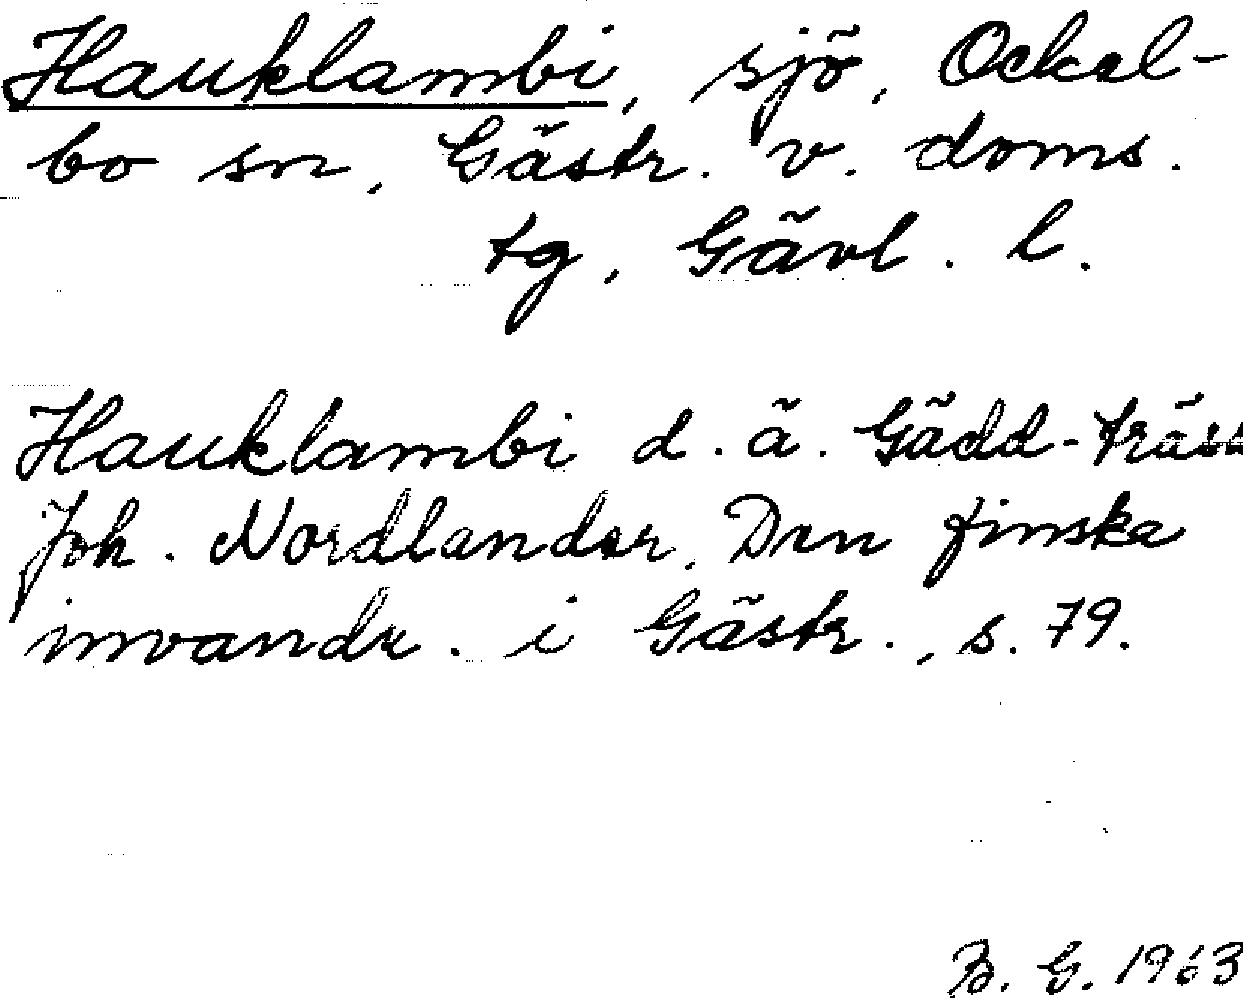 Hauklambi, sjö, Ockel-
bo sn, Gästr. v. doms.
tg, Gävl. l.
Hauklambi d. ä. Gädd-träsk
Joh. Nordlander, Den finska
invandr. i Gästr., s. 79.
B. G. 1963